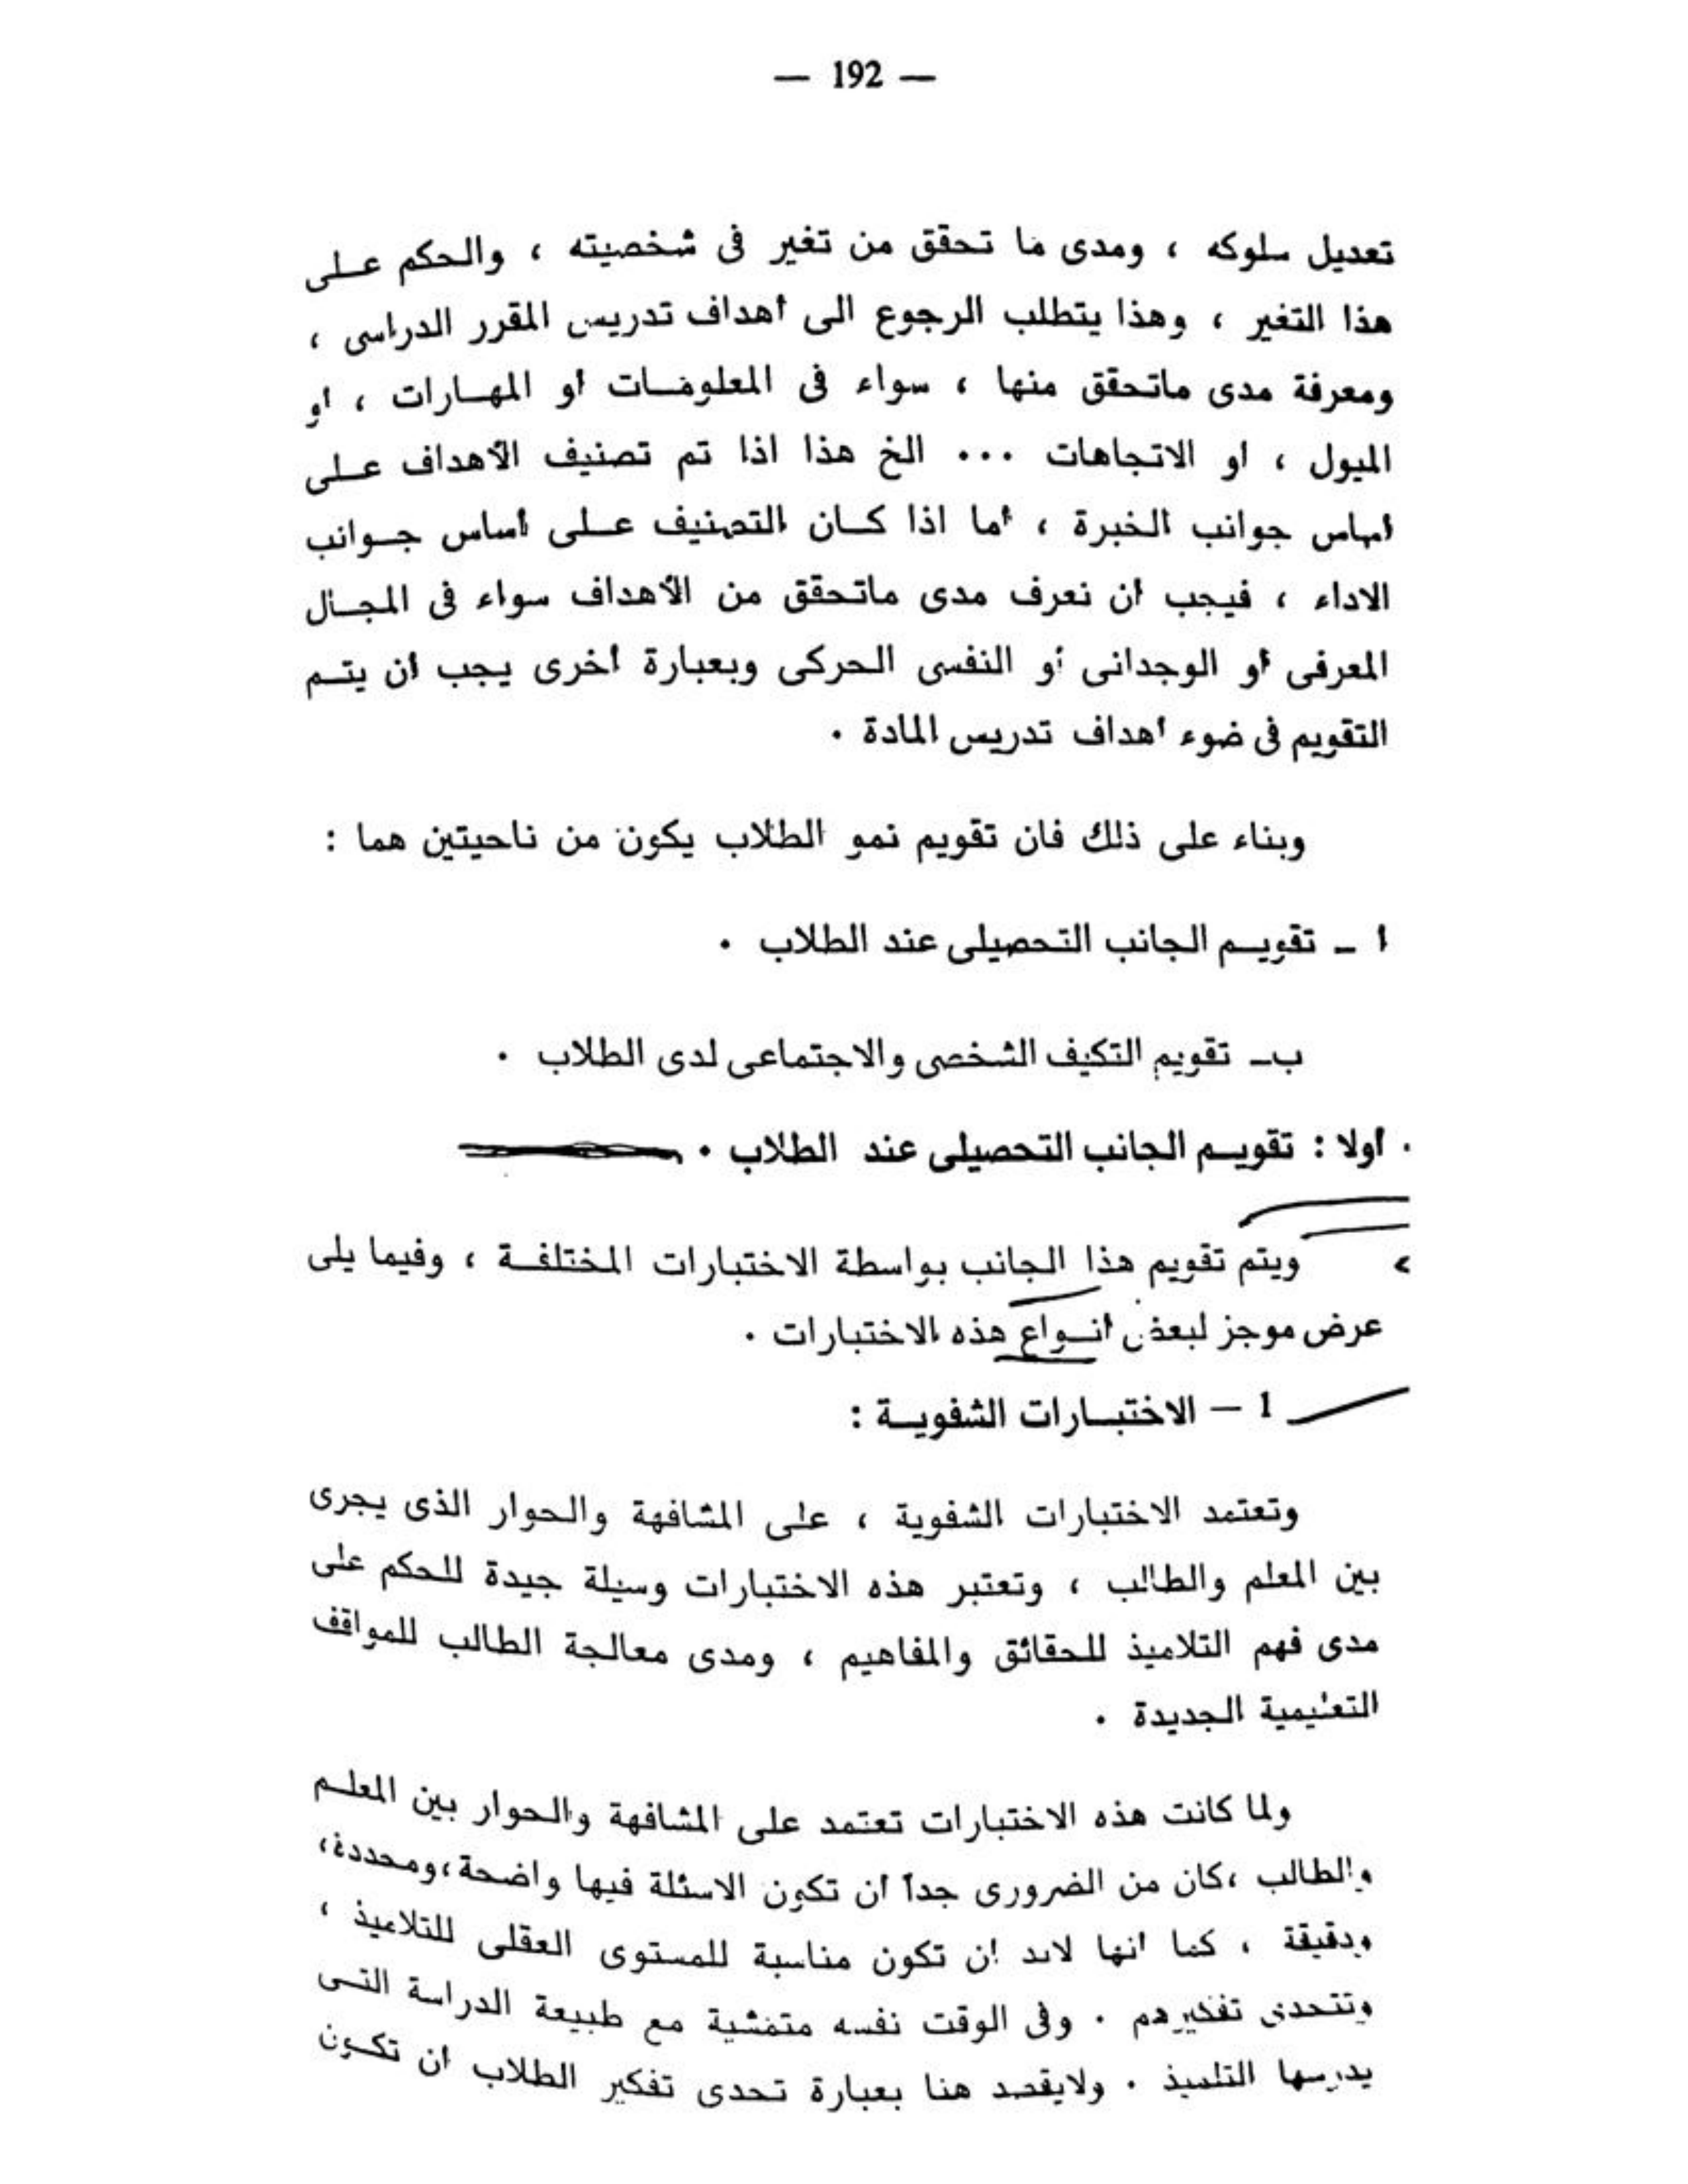 — 192 —
تعديل سلوكه ، ومدى ما تحقق من تغير فى شخصيته ، والحكم على
هذا التغير ، وهذا يتطلب الرجوع الى أهداف تدريس المقرر الدراسى ،
ومعرفة مدى ماتحقق منها ، سواء فى المعلومات أو المهارات ، او
الميول ، او الاتجاهات ... الخ هذا اذا تم تصنيف الأهداف على
أساس جوانب الخبرة ، أما اذا كان التصنيف على أساس جوانب
الاداء ، فيجب ان نعرف مدى ماتحقق من الأهداف سواء فى المجال
المعرفى أو الوجدانى أو النفسى الحركى وبعبارة أخرى يجب ان يتم
التقويم فى ضوء أهداف تدريس المادة .
وبناء على ذلك فان تقويم نمو الطلاب يكون من ناحيتين هما :
ا ـ تقويم الجانب التحصيلى عند الطلاب .
ب ـ تقويم التكيف الشخصى والاجتماعى لدى الطلاب .
أولا : تقويم الجانب التحصيلى عند الطلاب .
ويتم تقويم هذا الجانب بواسطة الاختبارات المختلفة ، وفيما يلى
عرض موجز لبعض انواع هذه الاختبارات .
1 — الاختبارات الشفوية :
وتعتمد الاختبارات الشفوية ، على المشافهة والحوار الذى يجرى
بين المعلم والطالب ، وتعتبر هذه الاختبارات وسيلة جيدة للحكم على
مدى فهم التلاميذ للحقائق والمفاهيم ، ومدى معالجة الطالب للمواقف
التعليمية الجديدة .
ولما كانت هذه الاختبارات تعتمد على المشافهة والحوار بين المعلم
والطالب ،كان من الضرورى جدآ ان تكون الاسئلة فيها واضحة،ومحددة،
ودقيقة ، كما انها لابد ان تكون مناسبة للمستوى العقلى للتلاميذ ،
وتتحدى تفكيرهم . وفى الوقت نفسه متمشية مع طبيعة الدراسة التى
يدرسها التلميذ . ولايقصد هنا بعبارة تحدى تفكير الطلاب ان تكون